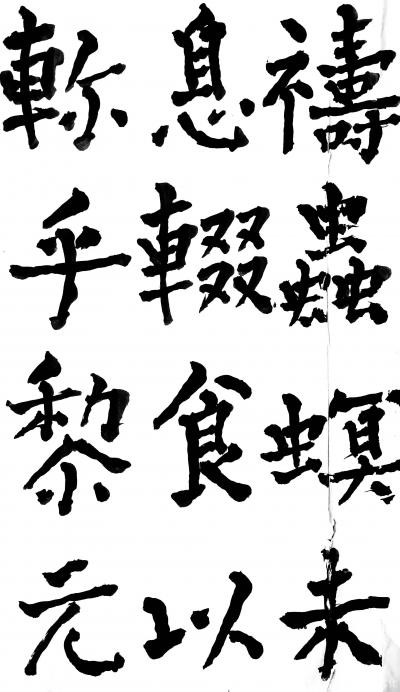 禱蟲螟未
息輟食以
軫乎黎元